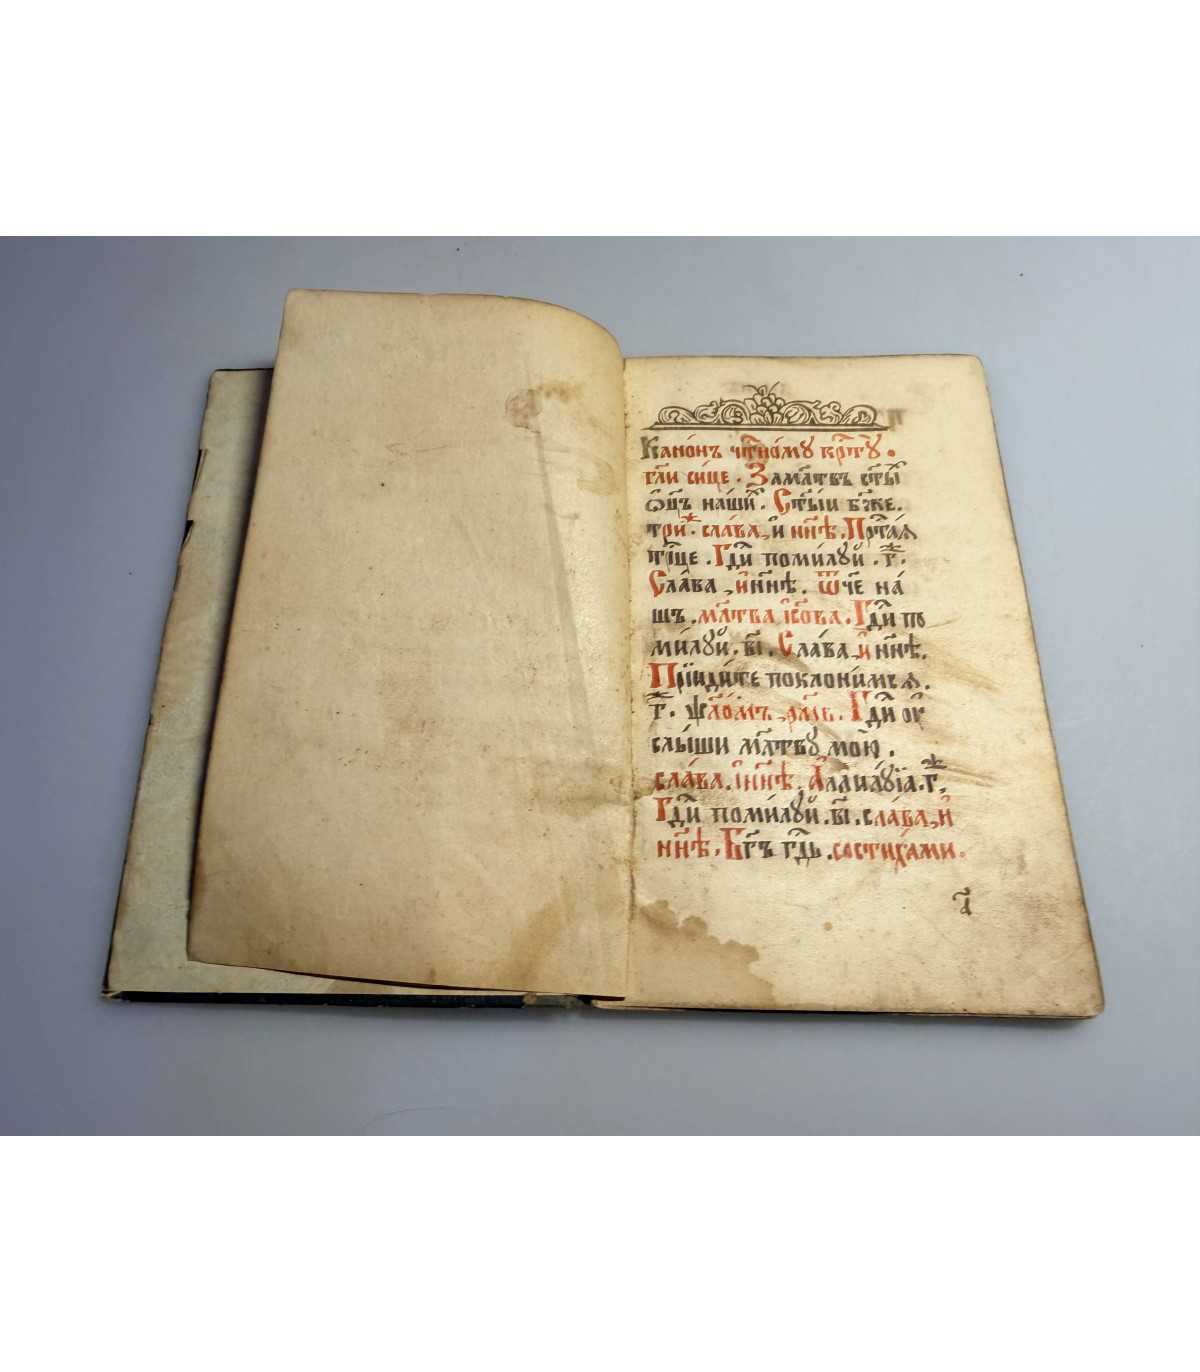 Канонъ чтⷭ҇ному крⷭ҇ту.
глаⷢ҇и сице. Замлт҃въ ст҃ыⷯ
ѻц҃ъ нашиⷯ. Ст҃ыи бж҃е.
три́ⷤ. сла́ва, и҆ нн҃ѣ. Прⷭ҇та́ѧ
трⷪ҇це. Гдⷭ҇и поми́лꙋй. г҃ⷤ.
Сла́ва, и҆нн҃ѣ. Ѿч҃е на́
шъ. мл҃тва і҆сⷭ҇ова. Гдⷭ҇и по
ми́лꙋй. в҃і. Сла́ва, и҆ нн҃ѣ.
Прїиди́те поклони́мъсѧ.
г҃. ѱало́мъ, рм҃в. Гдⷭ҇и ᲂу҆
слы́ши мл҃твꙋ мою̀.
сла́ва. и҆нн҃ѣ. А҆ллилꙋ́їа. г҃ⷤ.
Гдⷭ҇и поми́лꙋй. в҃і. сла́ва, и҆
нн҃ѣ. Бг҃ъ гдⷭ҇ь. состиха́ми.
а҃